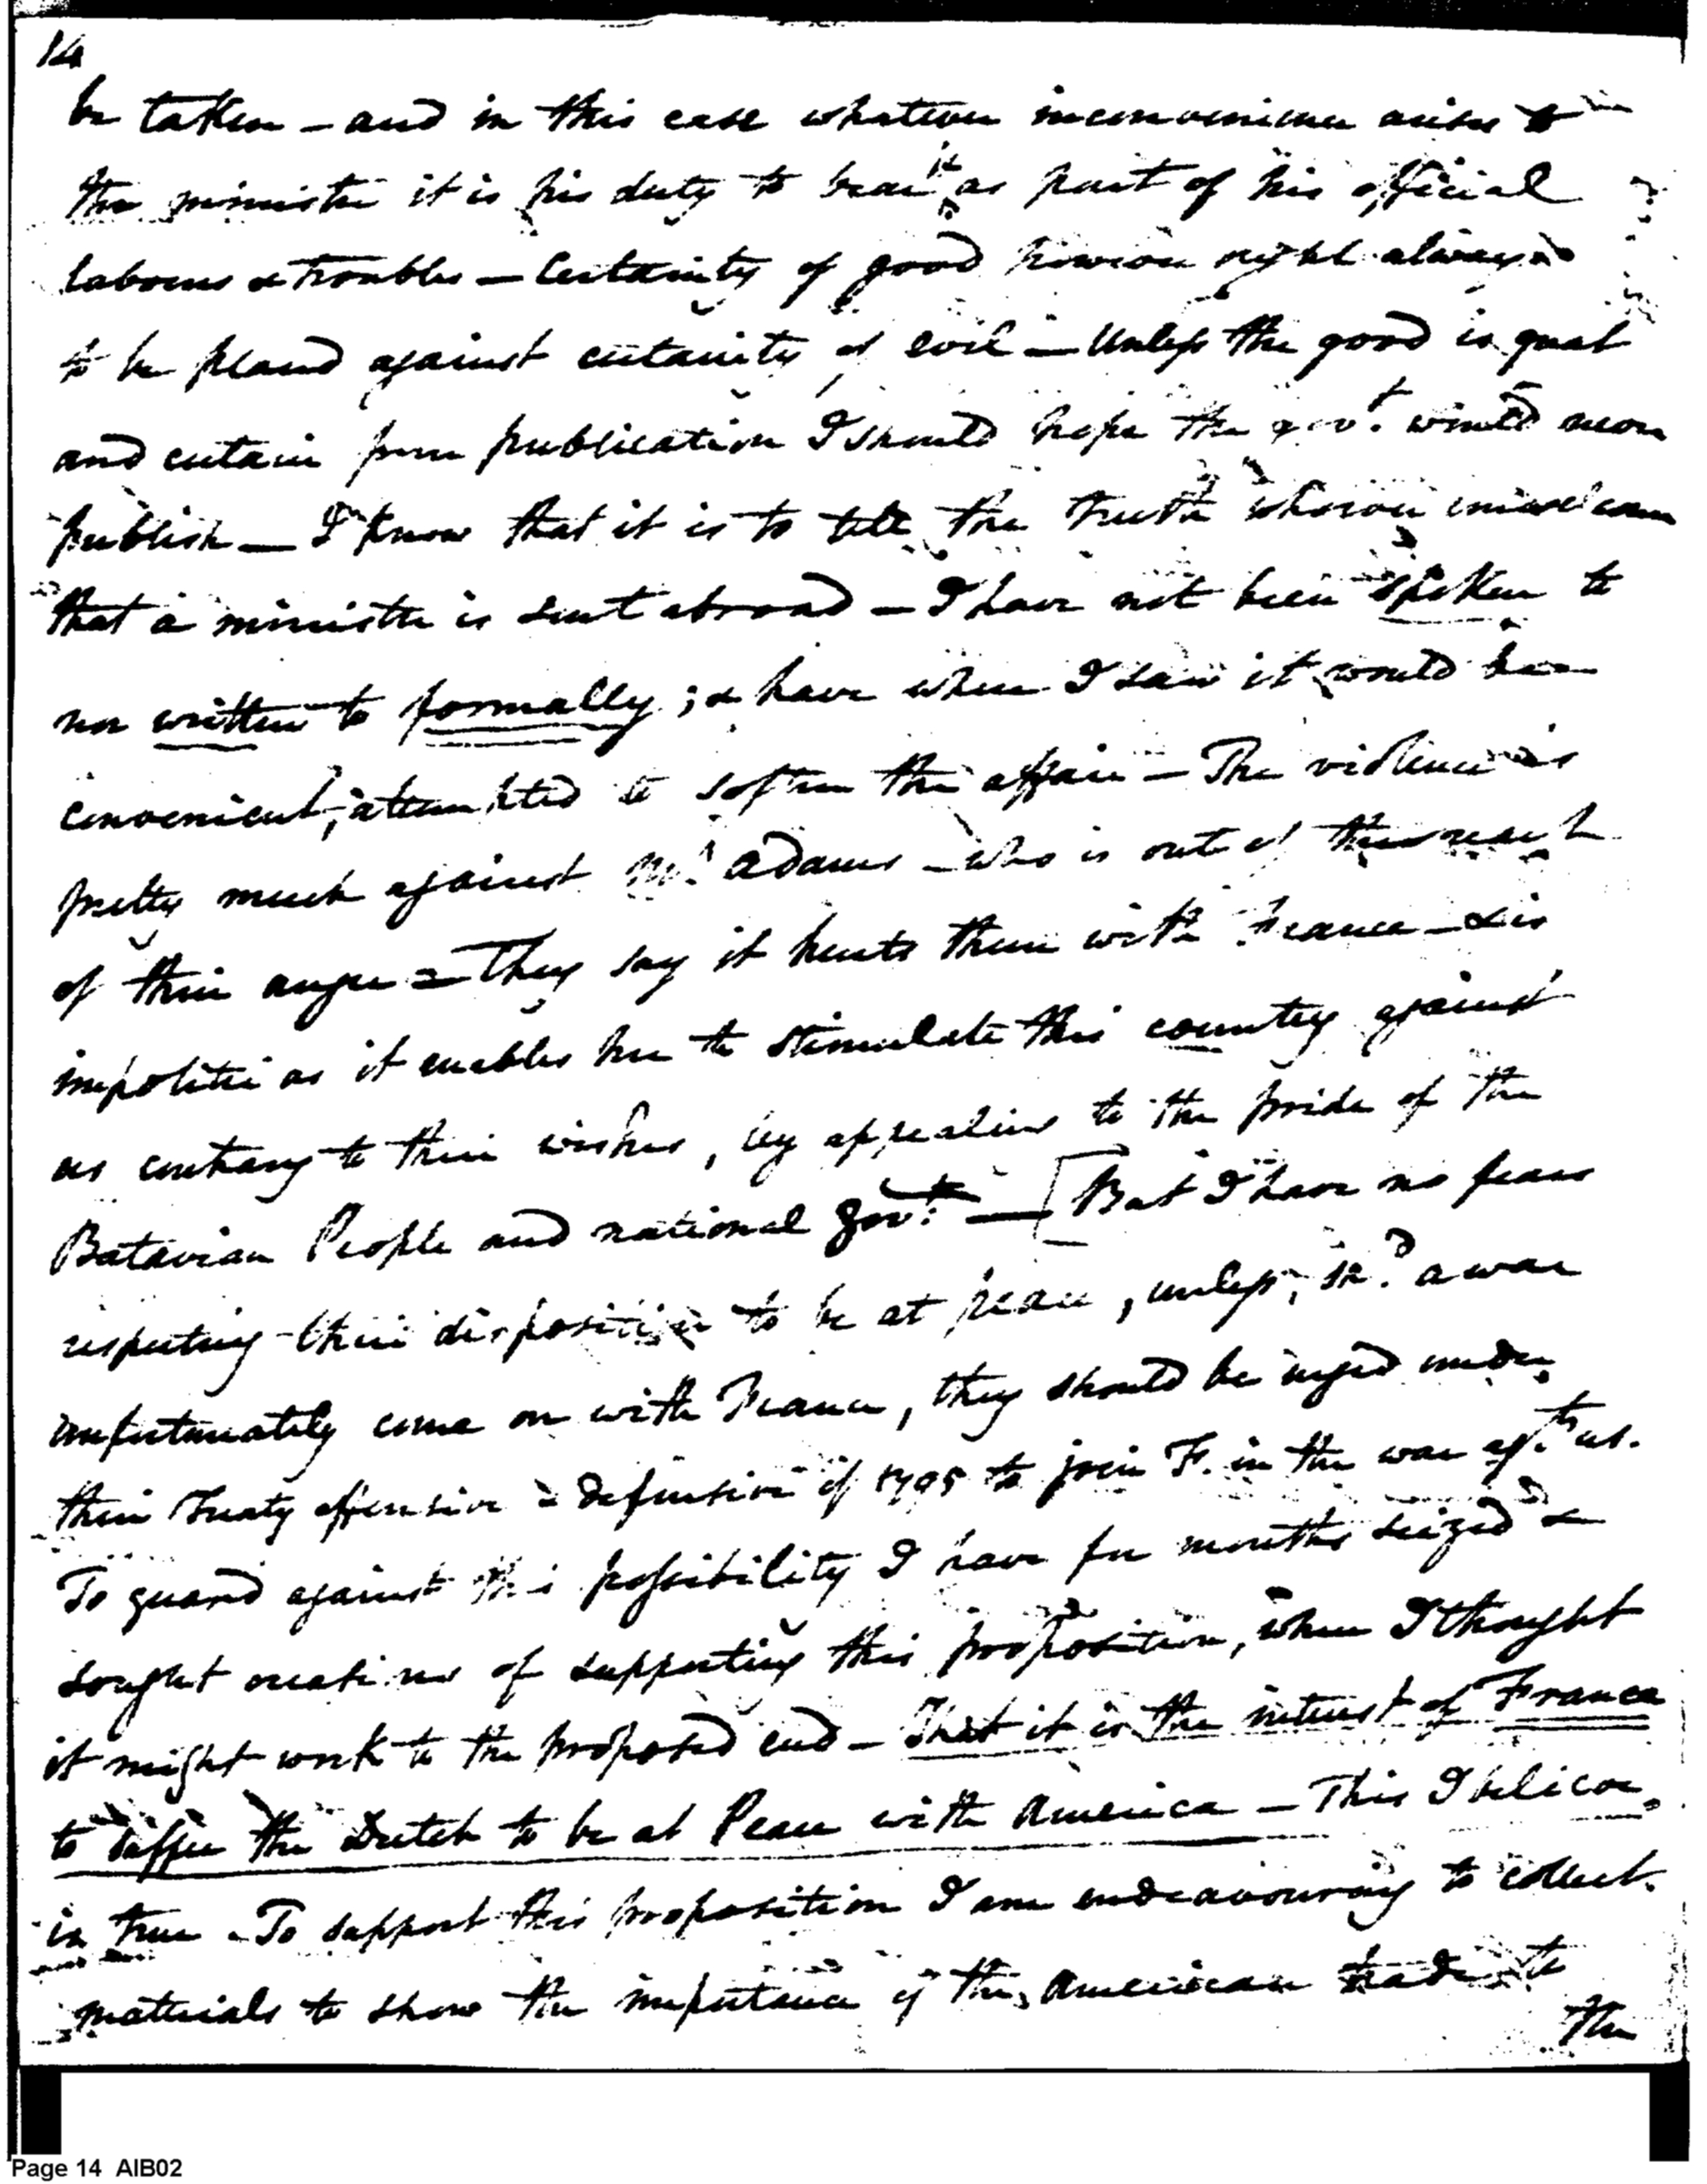 14
be taken – and in this case whatever inconvenience arises to
the minister it is his duty to bear it as part of his official
labours & troubles – Certainty of good however ought always
to be placed against certainty of evil – Unless the good is great
and certain from publication I should hope the gov.t would never
publish – I know that it is to tell the truth however unwelcome
that a minister is sent abroad – I have not been spoken to
nor written to formally; & have when I saw it would be
convenient, attempted to soften the affair – The violence is
pretty much against Mr. Adams – who is out of the reach
of their anger – They say it hurts them with France – & is
impolitic as it enables her to stimulate this country against
us contrary to their wishes, by appealing to the pride of the
Batavian People and national gov.t – [But I have no fears
respecting their disposition to be at peace, unless, sh.d a war
unfortunately come on with France, they should be urged under
their Treaty offensive & defensive of 1795 to join F. in the war ag.t us.
To guard against this possibility I have for months seized &
sought occasions of supporting this proposition, when I thought
it might work to the proposed end – That it is the interest of France
to suffer the Dutch to be at Peace with America – This I believe
is true – To support this proposition I am endeavouring to collect
materials to show the importance of the American trade to
the
Page 14 AIB02